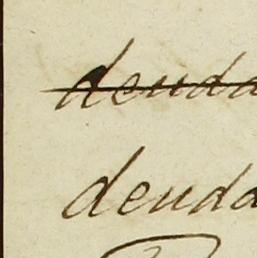 deuda
deuda